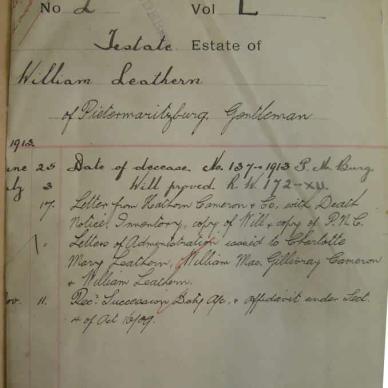 No 2 Vol L
Testate Estate of
William Leathern
of Pietermaritzburg Gentleman
1913
June 25 Date of decease. No. 137-1913 P. M. Burg
July 3 Will proved R.W 172-XII.
17. Letter from Hathorn Cameron & Co. with Death
Notice, Inventory, copy of Will, copy of P.N.C.
Letters of Administration issued to Charlotte
Mary Leathern, William Mac. Gillivray Cameron
& William Leathern.
Nov. 11. Rec: Succession Duty A/c, & affidavit under Sect.
4 of Act 16/09.